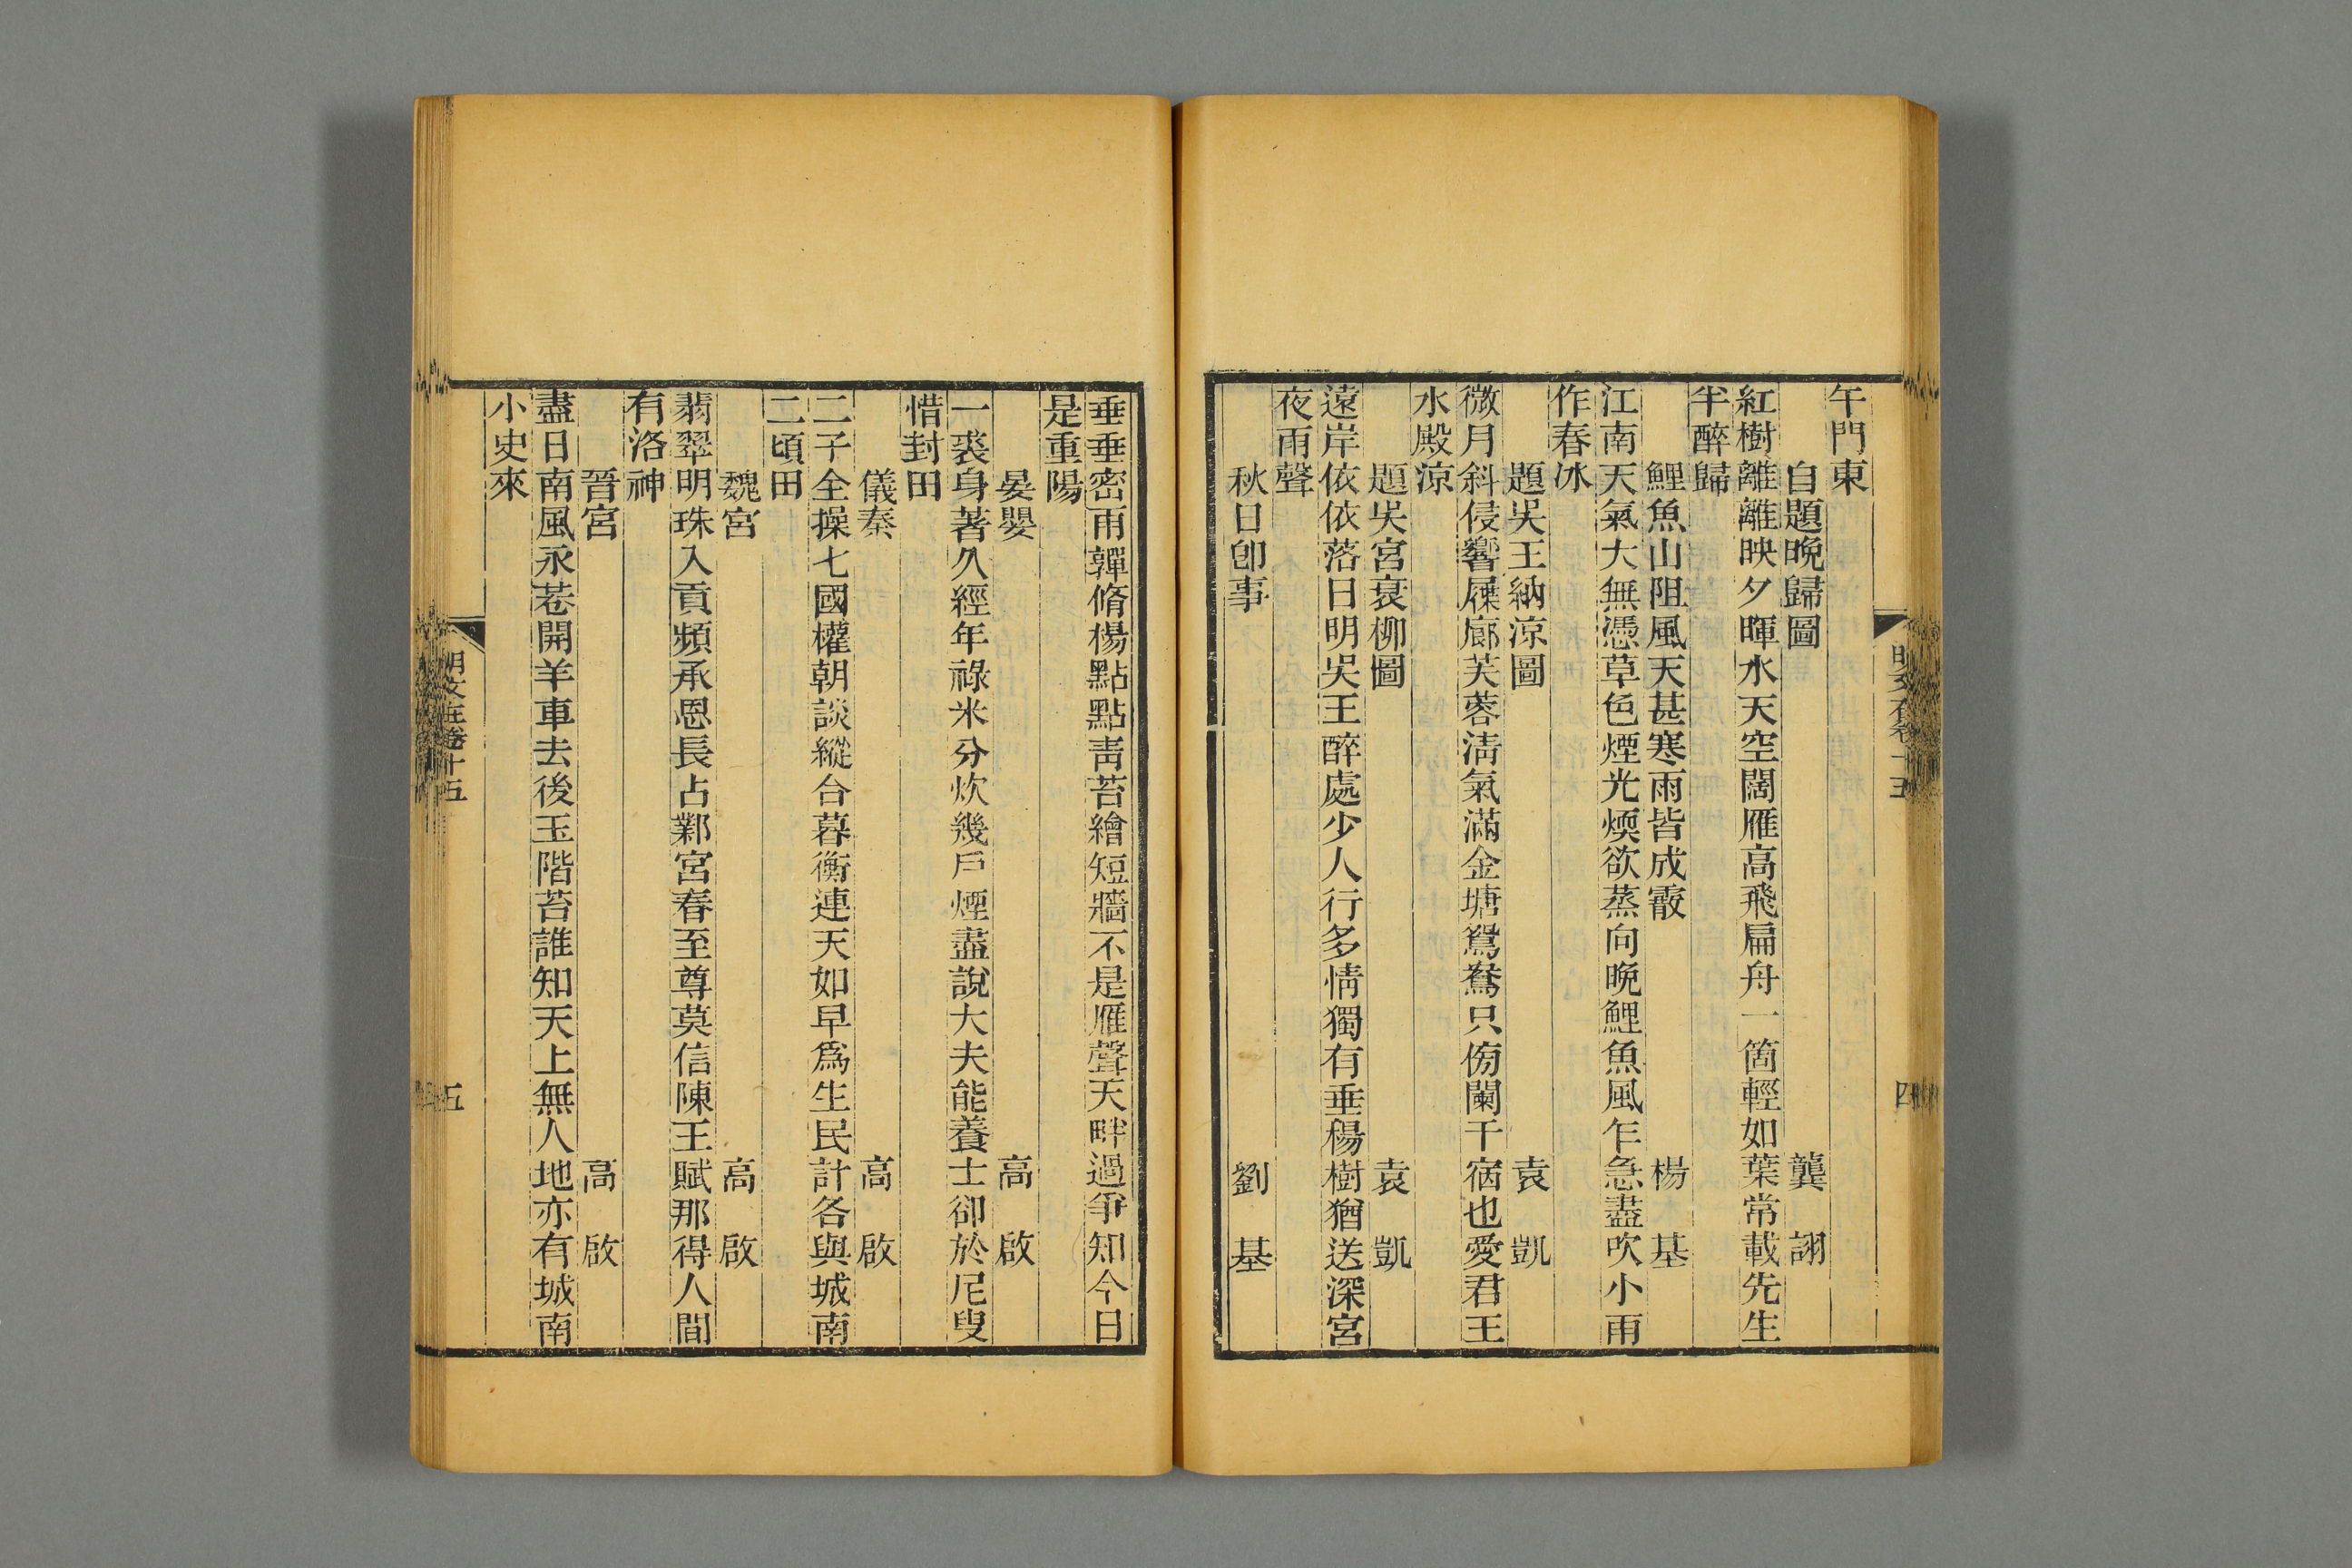 午門東
自題晚歸圖 龔 詡
紅樹離離映夕暉水天空闊雁高飛扁舟一箇輕如葉常載先生
半醉歸
鯉魚山阻風天甚寒雨皆成霰 楊 基
江南天氣大無憑草色煙光煗欲蒸向晚鯉魚風乍急盡吹小雨
作春冰
題吳王納涼圖 袁 凱
微月斜侵響屧廊芙蓉淸氣滿金塘鴛鴦只傍闌干宿也愛君王
水殿涼
題吳宮衰柳圖 袁 凱
遠岸依依落日明吳王醉處少人行多情獨有垂楊樹猶送深宮
夜雨聲
秋日卽事 劉 基
垂垂密雨嚲脩楊點點靑苔繪短牆不是雁聲天畔過爭知今日
是重陽
晏嬰 高 啟
一裘身著久經年祿米分炊幾戶煙盡說大夫能養士卻於尼叟
惜封田
儀秦 高 啟
二子全操七國權朝談縱合暮衡連天如早爲生民計各與城南
二頃田
魏宮 高 啟
翡翠明珠入貢頻承恩長占鄴宮春至尊莫信陳王賦那得人間
有洛神
晉宮 高 啟
盡日南風永巷開羊車去後玉階苔誰知天上無人地亦有城南
小史來
明文在卷十五
五